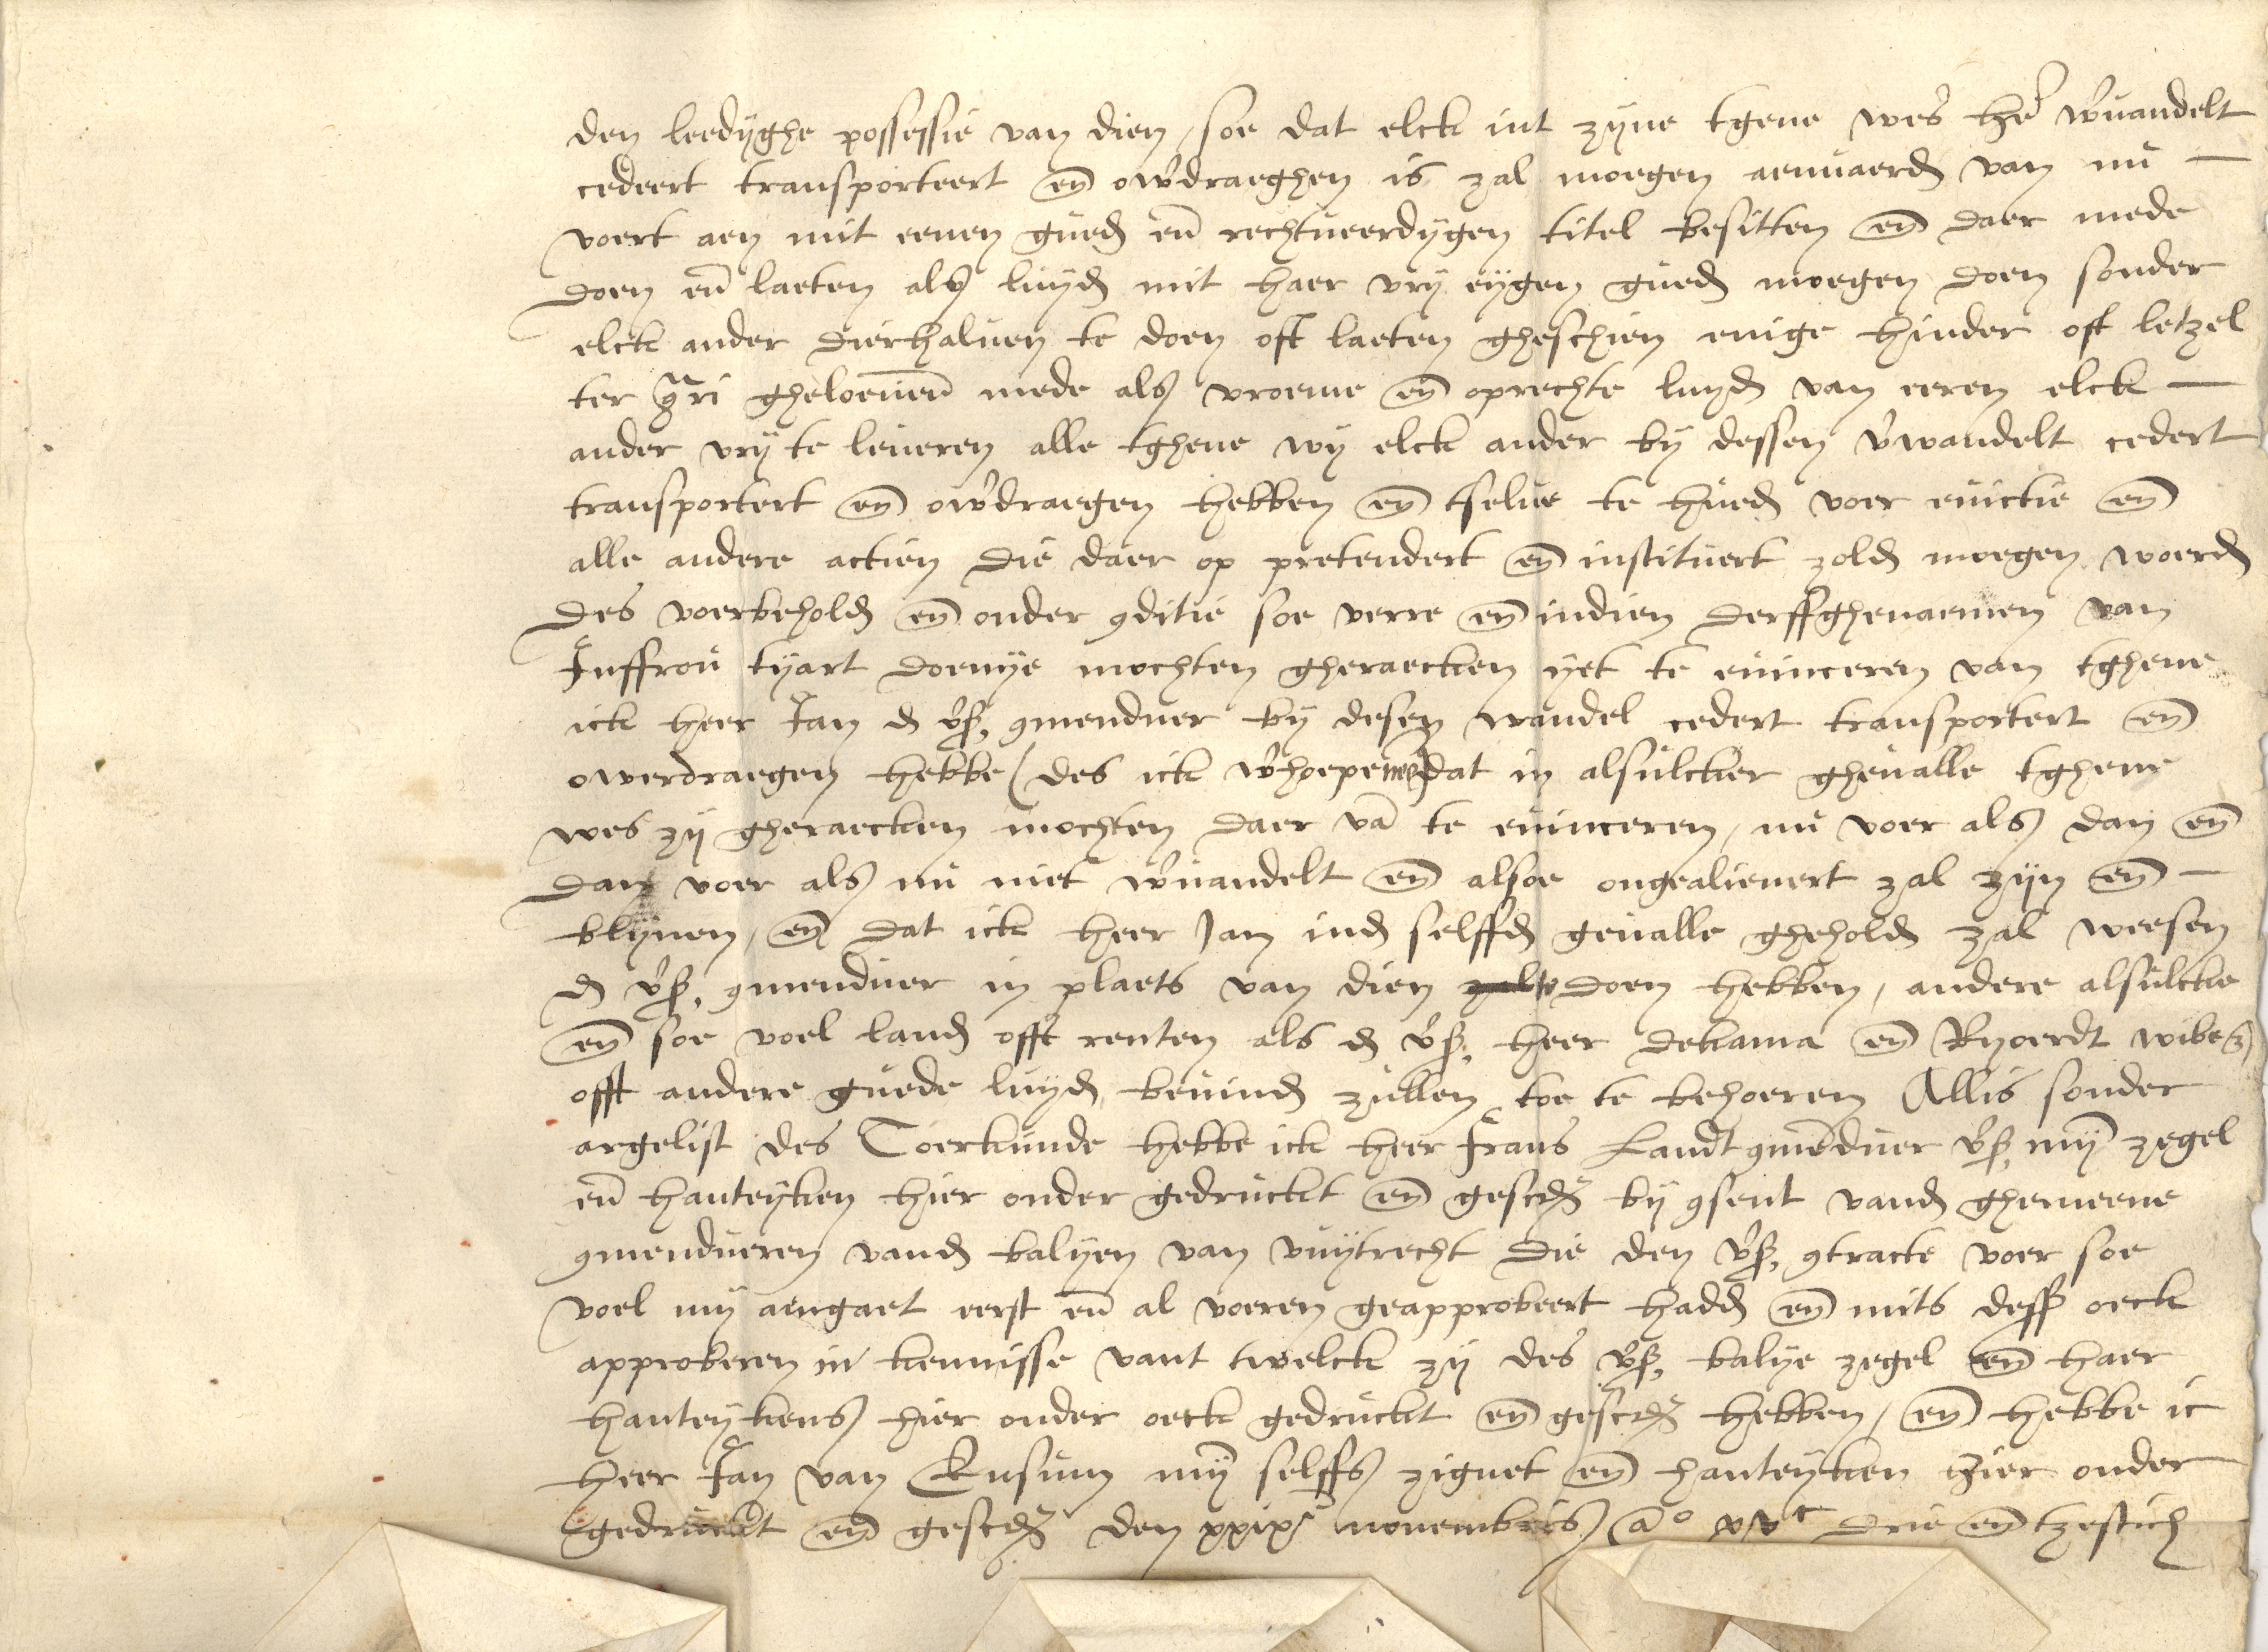 den leedyghe possessie van dien, soe dat elck int zyne tgene wes he͂r v͂wandelt
cedeert transporteert en͂ ov͂draeghen is zal moegen aenvaerd͂ van nu —
voert aen mit eenen gued͂ en͂ rechtveerdygen titel besitten en͂ daer mede
doen en͂ laeten als luyd͂ mit haer vry eygen gued͂ moegen doen sonder
elck ander dierhalven te doen oft laeten gheschien enige hinder oft letzel
ter gheloevend͂ mede als vroeme en͂ oprechte luyd͂ van eeren elck —
ander vry te leveren alle tghene wy elck ander by dessen v͂wandelt cedert
transportert en͂ ov͂draegen hebben en͂ tselve te hued͂ voer evictie en͂
alle andere actien die daer op pretendert en͂ instituert zold͂ moegen woerd͂
des voerbehold͂ en͂ onder 9ditie soe verre en͂ indien derffghenaemen van
Juffrou tyart doenye mochten gheraecken yet te evinceren van tghene
ick heer Jan d͂ v͂s. 9menduer by desen wandel cedert transportert en͂
overdraegen hebbe (des ick v͂hoepe neen) dat in alsulcker ghevalle tghene
wes zy gheraecken mochten daer va͂ te evinceren, nu voer als dan en͂
dan voer als nu niet v͂wandelt en͂ alsoe ongealienert zal zyn en͂ —
blyven, en͂ dat ick heer Jan ind͂ selffd͂ gevalle ghehold͂ zal weesen
d͂ v͂s. 9menduer in plaets van dien te doen hebben, andere alsulcke
en͂ soe voel land͂ offt renten als d͂ v͂s. heer dekama en͂ Ryoerdt wibes,
offt andere guede luyd͂ bevind͂ zullen toe te behoeren Allis sonder
argelist des Toerkunde hebbe ick heer frans Landt 9me͂duer v͂s. my͂ zegel
en͂ hanteyken hier onder gedruckt en͂ gescr͂ by 9sent vand͂ ghemeene
9mendueren vand͂ balyen van vuytrecht die den v͂s. 9tracte voer soe
voel my aengaet eerst en͂ al voeren geapprobeert hadd͂ en͂ mits dess͂ oeck
approberen in kennisse vant twelck zy des v͂s. balye zegel en͂ haer
hanteykens hier onder oeck gedruckt en͂ gescr͂ hebben, en͂ hebbe ic
heer Jan van Ewsum my͂ selffs zignet en͂ hanteyken hier onder
gedruckt en͂ gescr͂ den xxix novembris a͂o xvc drie en͂ tzestich